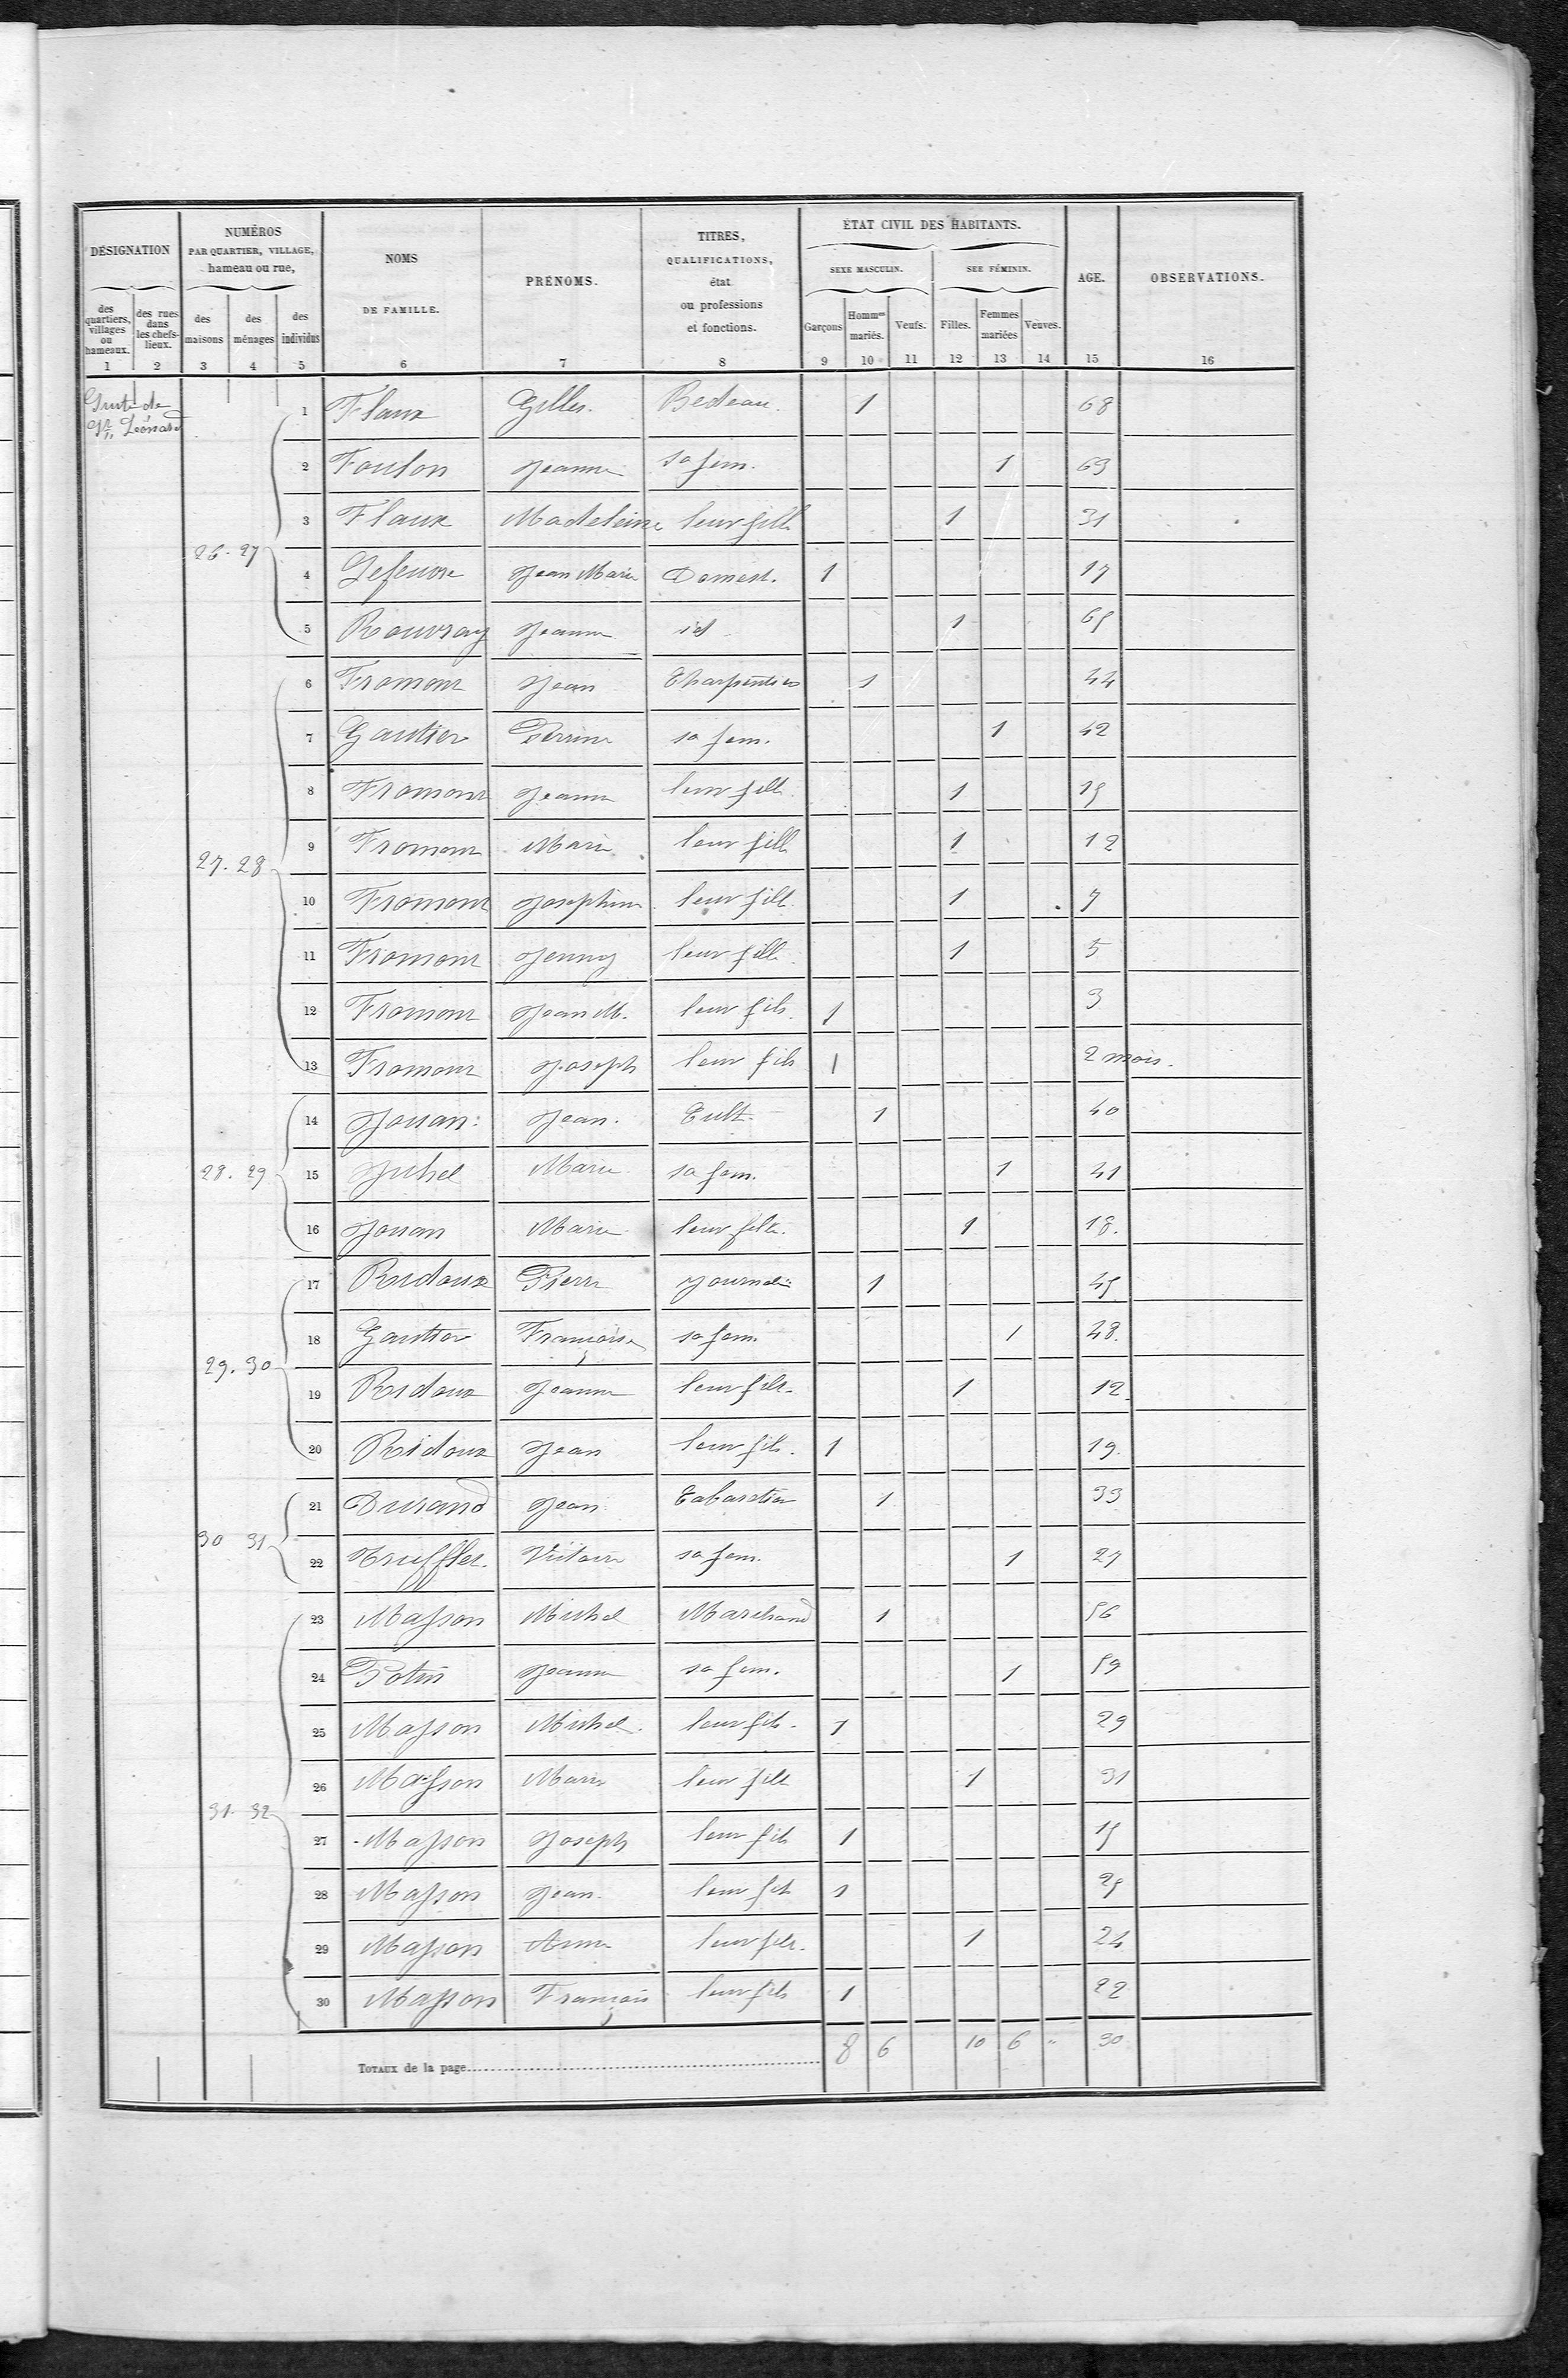 DÉSIGNATION
NUMÉROS
PAR QUARTIER, VILLAGE,
hameau ou rue,
NOMS
DE FAMILLE.
PRÉNOMS.
TITRES,
QUALIFICATIONS,
état
ou professions
et fonctions.
ÉTAT CIVIL DES HABITANTS.
SEXE MASCULIN.
SEE FÉMININ.
AGE.
OBSERVATIONS.
des quartiers, villages ou hameaux.
des rues dans les chefs-lieux.
des maisons
des ménages
des individus
Garçons
Hommes mariés.
Veufs.
Filles.
Femmes mariées
Veuves.
1 2 3 4 5 6 7 8 9 10 11 12 13 14 15 16
Suite de
St Léonard
26. 27
1 Flaux Gilles. Bedeau. 1 68
2 Foulon Jeanne sa fem. 1 63
3 Flaux Madeleine leur fille 1 31
4 Lefeuvre Jean Marie Domest. 1 17
5 Rouvray Jeanne id 1 65
27. 28
6 Fromont Jean Charpentier 1 44
7 Gautier Perrine sa fem. 1 42
8 Fromont Jeanne leur fille 1 15
9 Fromont Marie leur fille 1 12
10 Fromont Josephine leur fille 1 7
11 Fromont Jenny leur fille 1 5
12 Fromont Jean M. leur fils. 1 3
13 Fromont Joseph leur fils 1 2 mois.
28. 29
14 Jouan: Jean. Cult. 1 40
15 Juhel Marie sa fem. 1 41
16 Jouan Marie leur fille. 1 18.
29. 30
17 Ridoux Pierre journ 1 45
18 Gautier Françoise sa fem. 1 48.
19 Ridoux Jeanne leur fille. 1 12.
20 Ridoux Jean leur fils. 1 19.
30 31
21 Durand Jean Cabaretier 1 33
22 Truffler. Victoire sa fem. 1 27
31. 32
23 Masson Michel Marchand 1 56
24 Potin Jeanne sa fem. 1 59
25 Masson Michel. leur fils. 1 29
26 Masson Marie leur fille 1 31
27 Masson Joseph leur fils 1 15
28 Masson Jean leur fils 1 25
29 Masson Anne leur fille. 1 24
30 Masson François leur fils 1 22
TOTAUX de la page 8 6 10 6 " 30